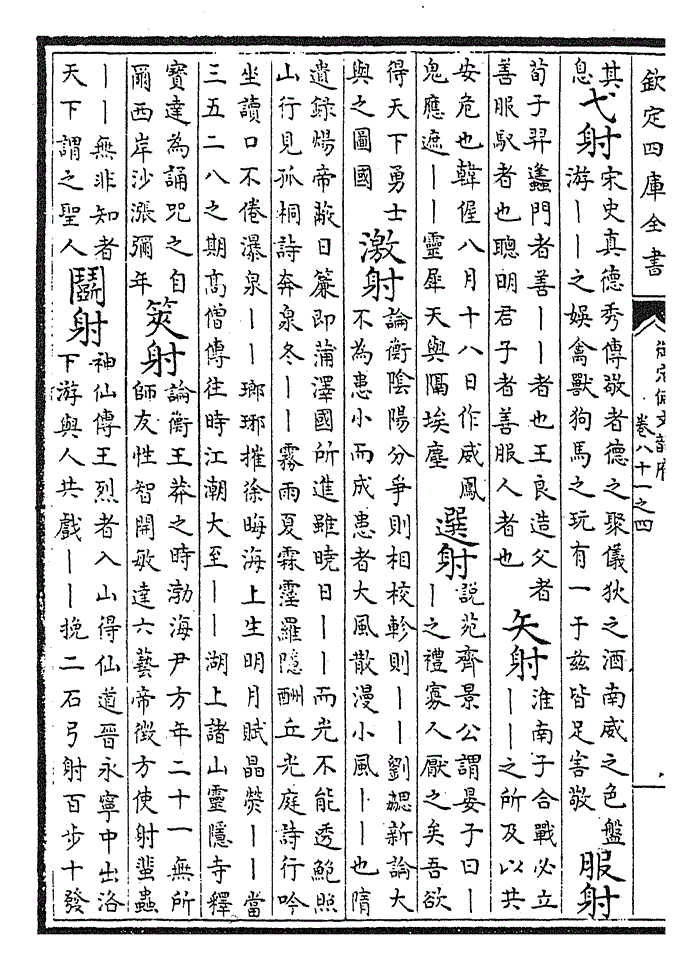 欽定四庫全書
御定佩文韻府 卷八十一之四
其
息
弋射
宋史真德秀傳敬者德之聚儀狄之酒南威之色盤
游——之娛禽獸狗馬之玩有一于兹皆足害敬
服射
荀子羿蠭門者善——者也王良造父者
善服馭者也聰明君子者善服人者也
矢射
淮南子合戰必立
——之所及以共
安危也韓偓八月十八日作威鳳
鬼應遮——靈犀天與隔埃塵
選射
說苑齊景公謂晏子曰—
—之禮寡人厭之矣吾欲
得天下勇士
與之圖國
激射
論衡陰陽分爭則相校軫則——劉勰新論大
不為患小而成患者大風散漫小風——也隋
遺録煬帝蔽日簾即蒲澤國所進雖曉日——而光不能透鮑照
山行見孤桐詩奔泉冬——霧雨夏霖霪羅隱酬丘光庭詩行吟
坐讀口不倦瀑泉——瑯琊摧徐晦海上生明月賦晶熒——當
三五二八之期高僧傳往時江潮大至——湖上諸山靈隱寺釋
寳達為誦咒之自
爾西岸沙漲彌年
筴射
論衡王莽之時渤海尹方年二十一無所
師友性智開敏達六藝帝徵方使射蜚蟲
——無非知者
天下謂之聖人
鬭射
神仙傳王烈者入山得仙道晉永寧中出洛
下游與人共戲——挽二石弓射百步十發